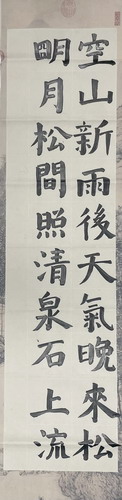 空山新雨後天氣晚來松
明月松間照清泉石上流